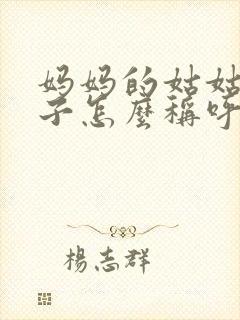 妈妈的姑姑
子怎麼稱呼
楊志群